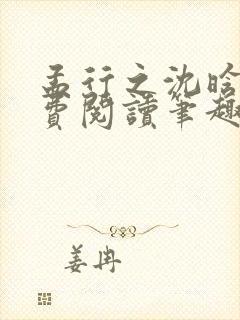 孟行之沈晗
費閱讀筆趣
姜冉